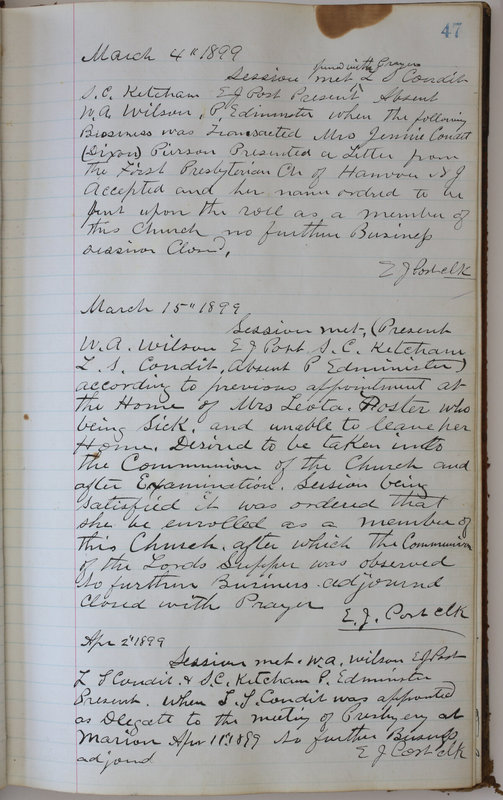 47
March 4th 1899
Session met L S Condit
opened with Prayers
S.C. Ketcham E J Post Present, Absent
W.A. Wilson, P. Edminster when the following
Business was Transacted Mrs Jennie
(Dixon) Pierson Presented a Letter from
the First Presbyterian Ch of Hanover N J
Accepted and her name ordred to be
put upon the roll as a member of
this Church no further Business
session Closed,
E J Post clk
March 15th 1899
Session met, (Present
W.A. Wilson E J Post S.C. Ketcham
L. S. Condit, absent P Edminister)
according to previous appointment at
the Home of Mrs Leota. Foster who
being Sick, and unable to leave her
Home. Desired to be taken into
the Communion of the Church and
after Examination. Session being
satisfied it was ordered that
she be enrolled as a member of
this Church. after which the Communion
of the Lords Supper was observed
No further Business adjourned
Closed with Prayer
E. J. Post clk
Apr 2d 1899
Session met. W.A. Wilson E J Post
L S Condit. & S.C. Ketcham P. Edminster
Present. When L.S. Condit was appointed
as Delegate to the meeting of Presbytery at
Marion Apr 11th 1899 No further Business
adjond
E J Post clk